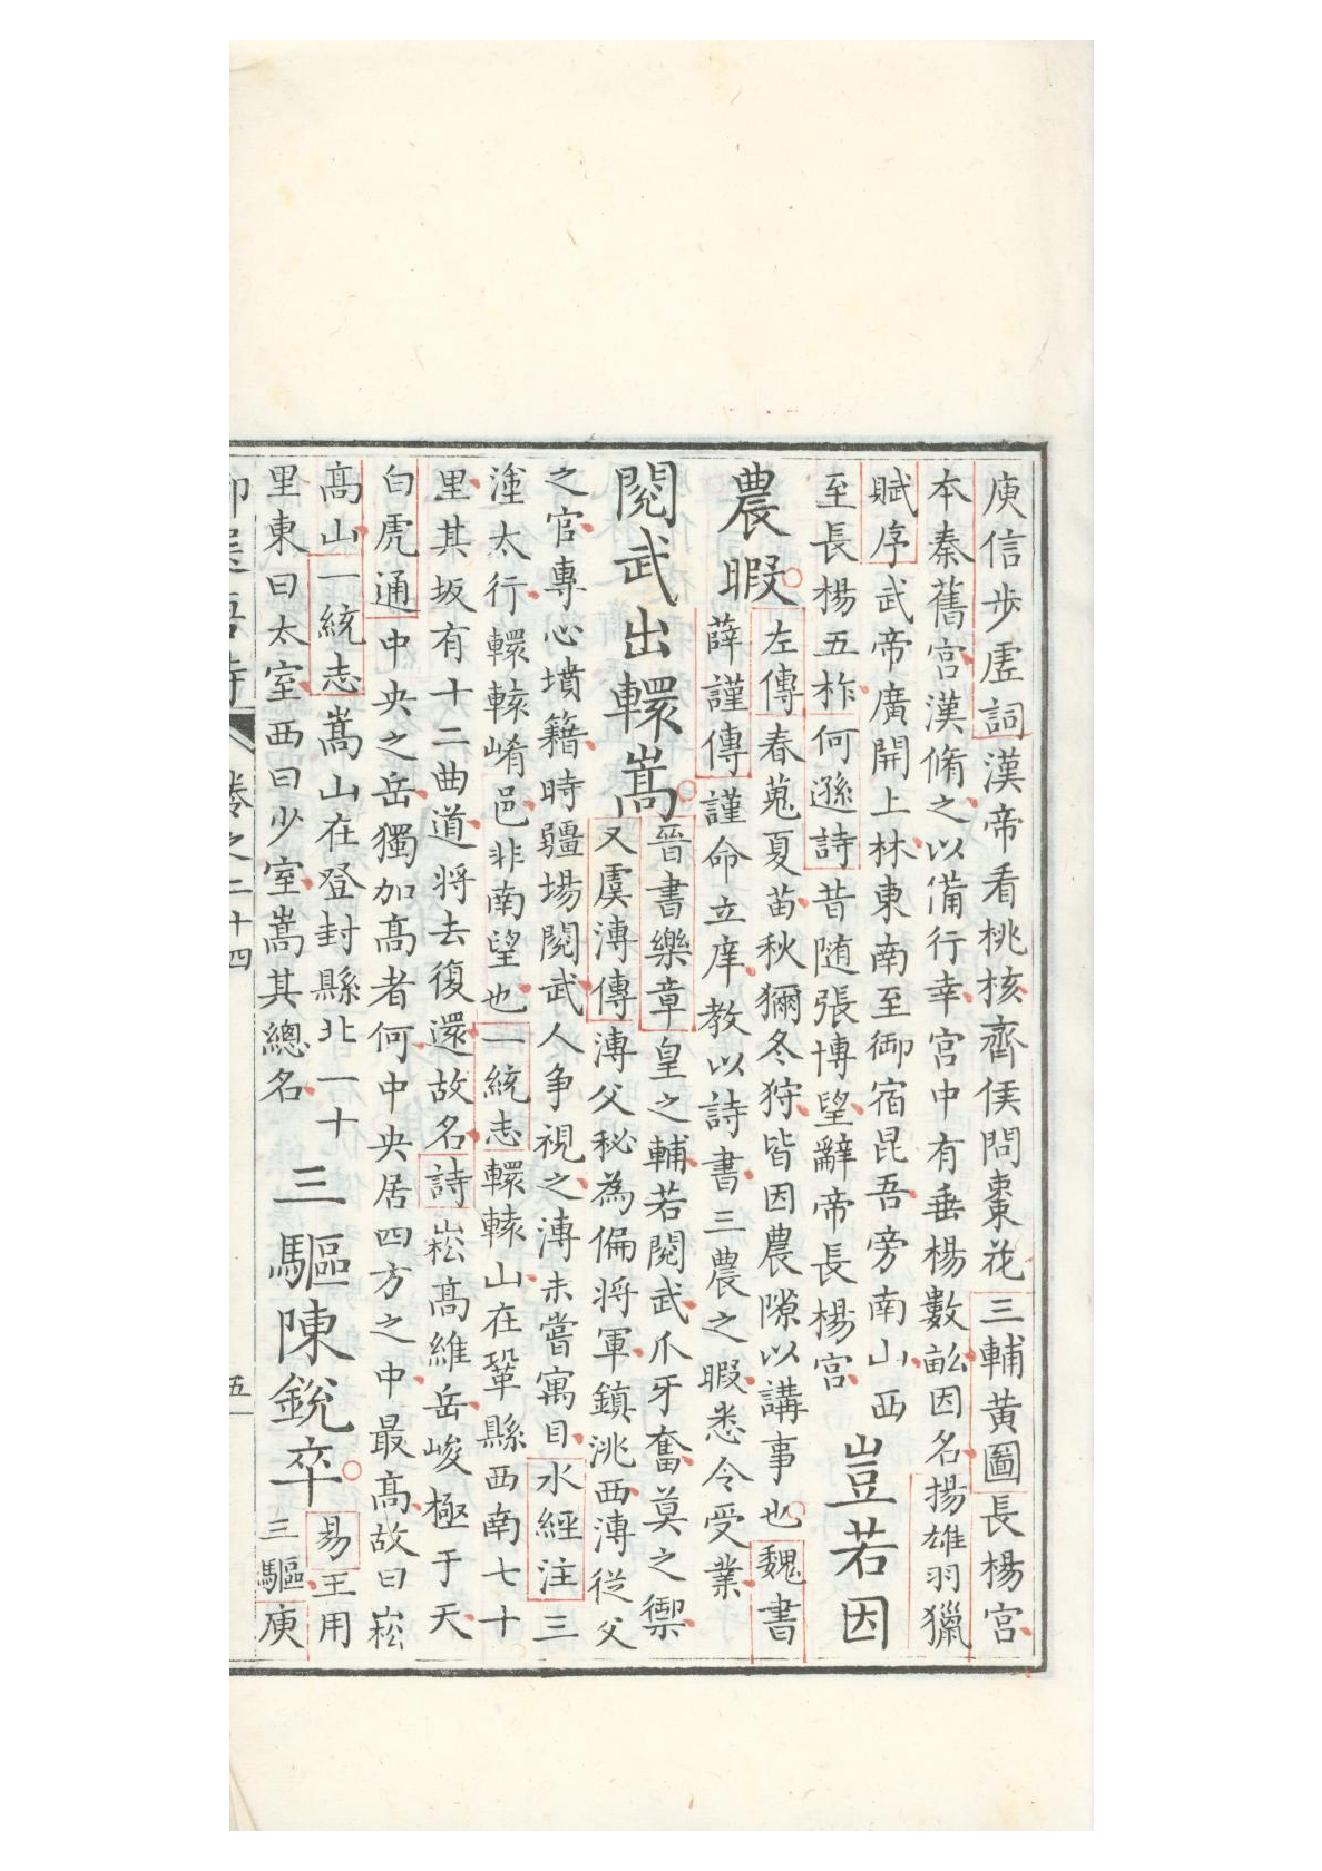 庾信步虛詞漢帝看桃核齊侯問棗花三輔黃圖長楊宮
本秦舊宮漢脩之以備行幸宮中有垂楊數畝因名揚雄羽獵
賦序武帝廣開上林東南至御宿昆吾旁南山西
至長楊五柞何遜詩昔隨張博望辭帝長楊宮
豈若因
農暇
左傳春蒐夏苗秋獮冬狩皆因農隙以講事也魏書
薛謹傳謹命立庠教以詩書三農之暇悉令受業
閱武出轘嵩
晉書樂章皇之輔若閱武爪牙奮莫之禦
又虞溥傳溥父秘為偏將軍鎮洮西溥從父
之官專心墳籍時疆場閱武人爭視之溥未嘗寓目水經注三
塗太行轘轅崤邑非南望也一統志轘轅山在鞏縣西南七十
里其坂有十二曲道將去復還故名詩崧高維岳峻極于天
白虎通中央之岳獨加高者何中央居四方之中最高故曰崧
高山一統志嵩山在登封縣北一十
里東曰太室西曰少室嵩其總名
三驅陳銳卒
易王用
三驅庾
卷之二十四
五